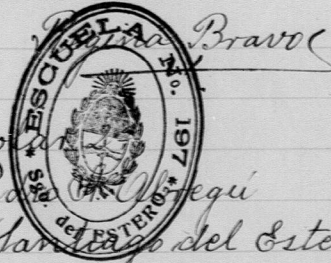 Regina Bravo
ESCUELA No. 197
Sgo. del ESTERO
Santiago del Este